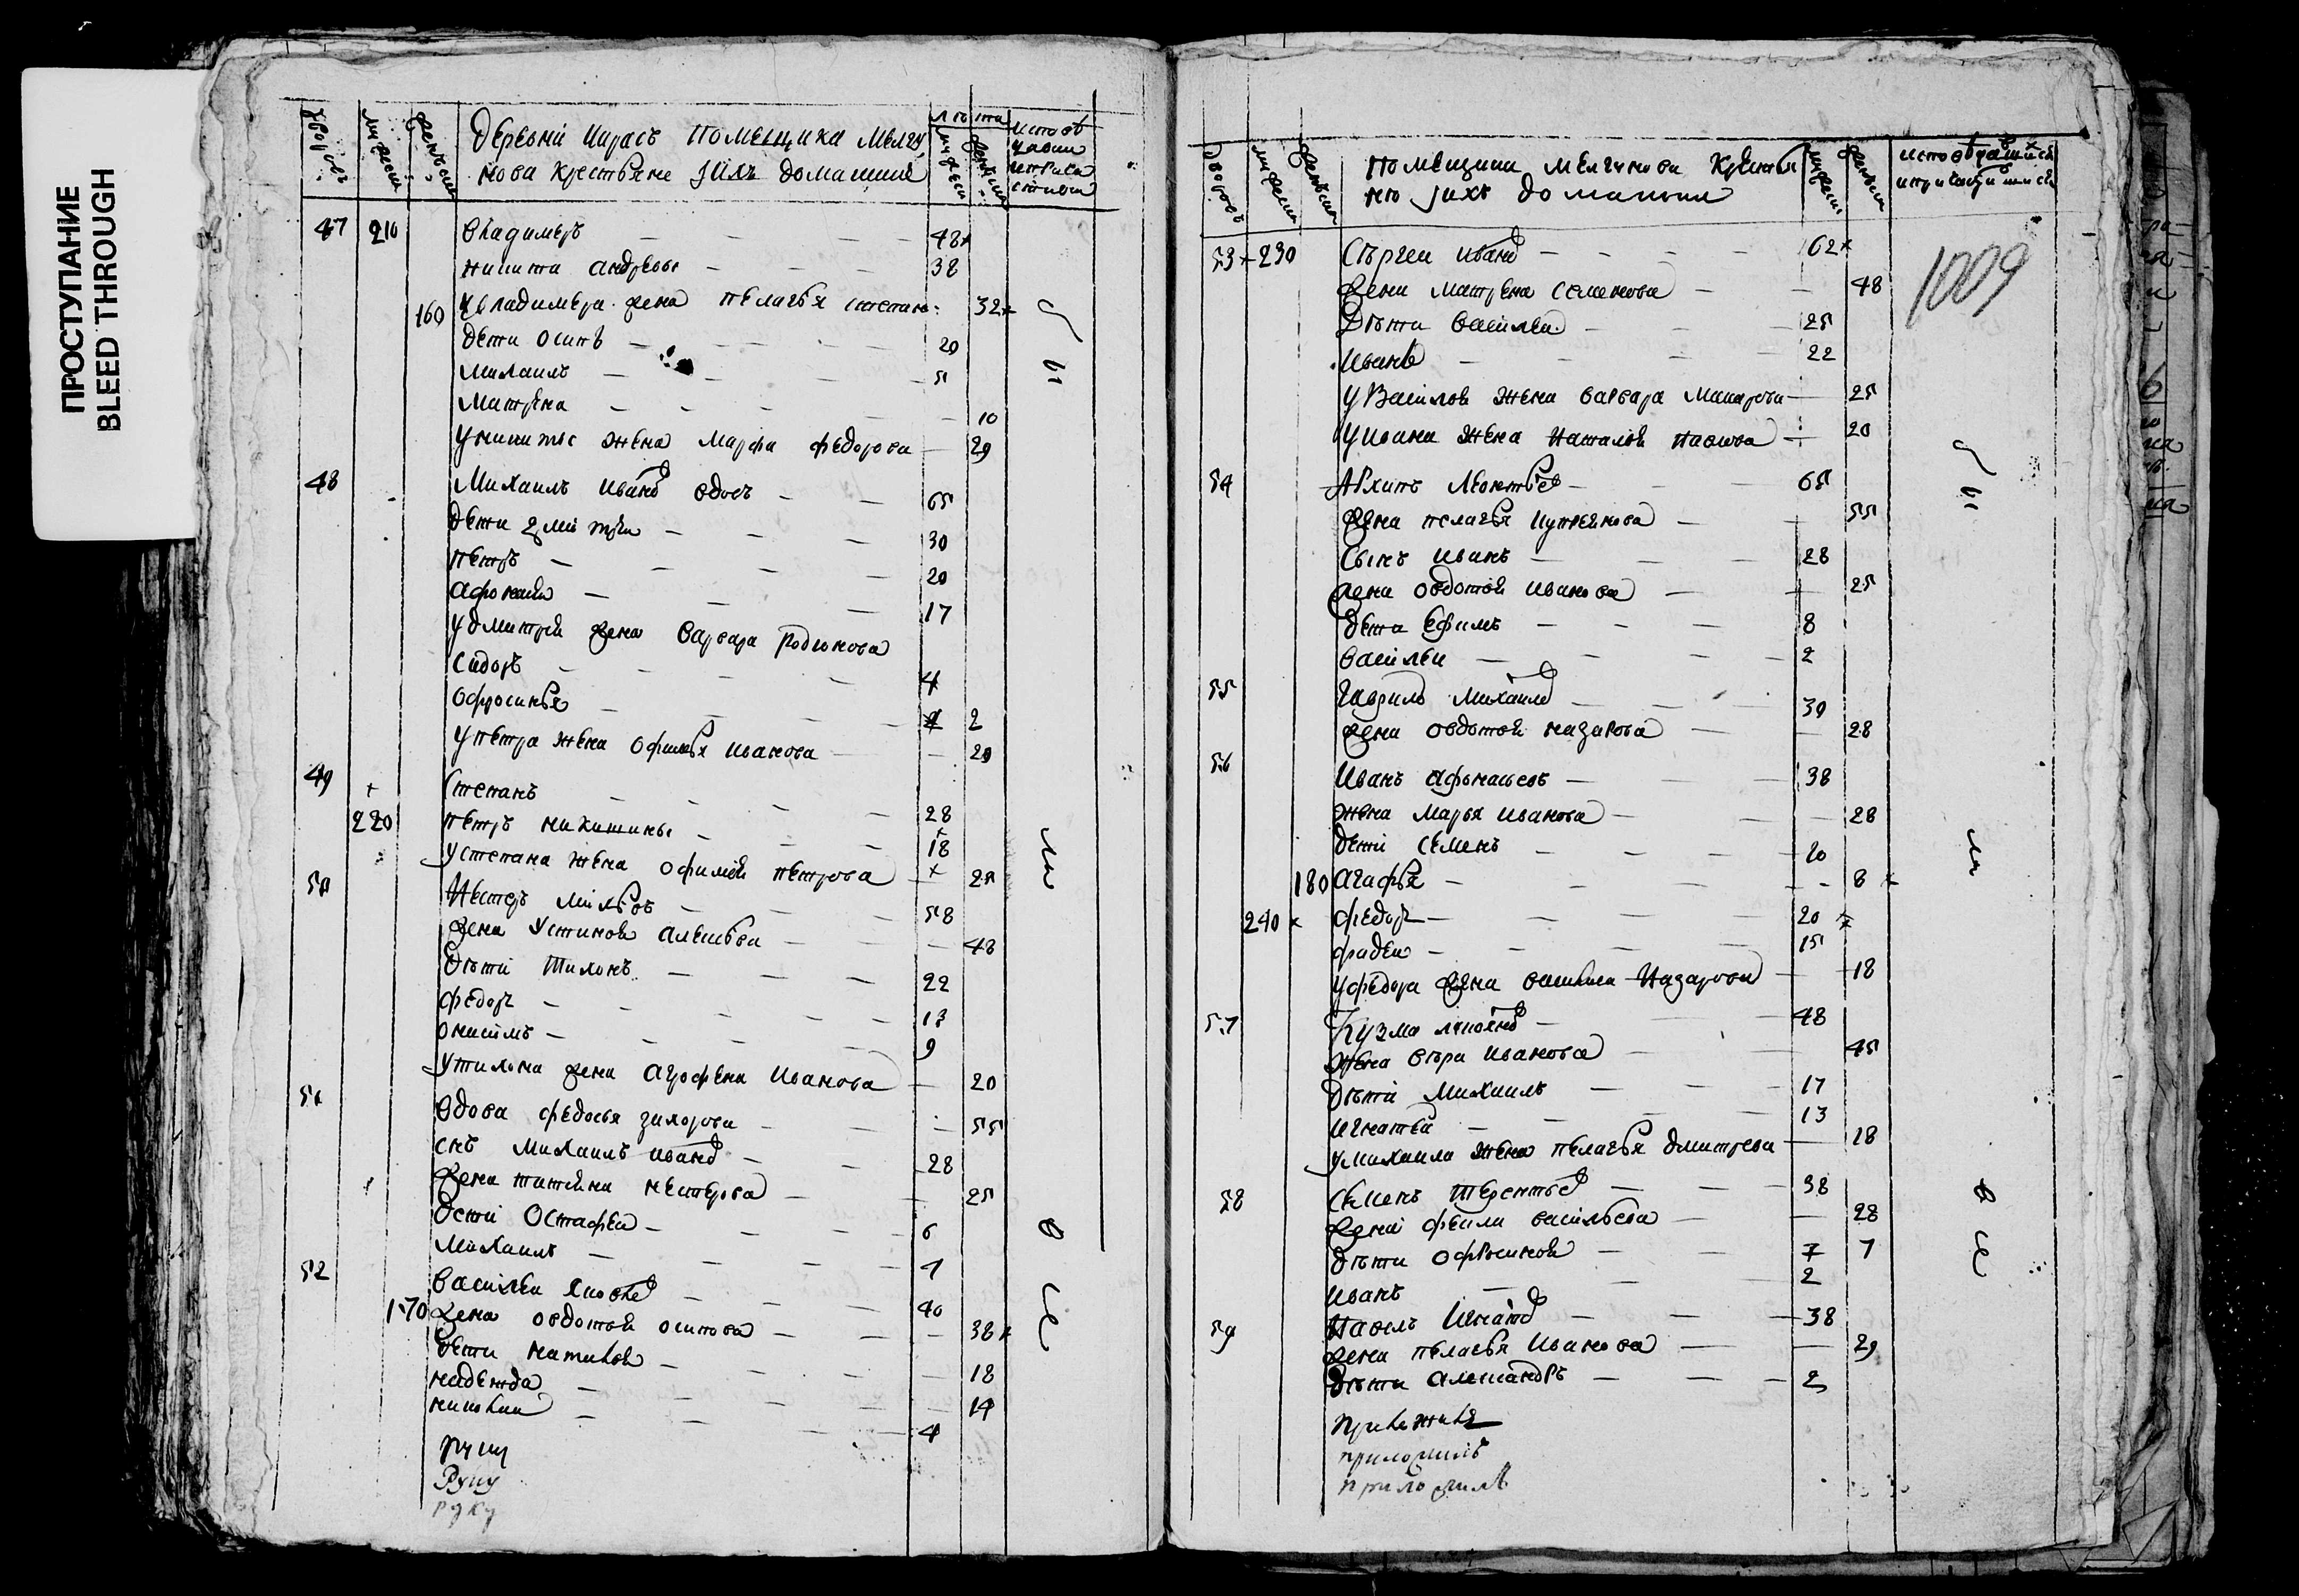 ПРОСТУПАНИЕ
BLEED THROUGH
дворовъ
мужеска
женска
лета
деревни помещика Мелгу
нова крестьяне ихъ домашние
47 210 владимеръ 48
никита андреевы 38
160 у владимера жена пелагья степан: 32
дети осипъ 20
михаилъ 5
матрена 10
у никиты жена марфа федорова 29
48 михаилъ иванов вдовъ 65
дети дмитреи 30
петръ 20
афонасеи 17
у дмитрея жена варвара родионова
сидоръ 4
офросинья 2
у петра жена офимья иванова 20
49 степанъ 28
220 петръ никитины 18
у степана жена офимия петрова 25
50 нестеръ 58
жена устиния алексеева 48
дети тихонъ 22
федоръ 13
онисимъ 9
у тихона жена агрофена иванова 20
51 вдова федосья захарова 55
снъ михаилъ иванов 28
жена татияна нестерова 25
дети остафеи 6
михаилъ 1
52 василеи 40
170 жена овдотия осипова 38
дети наталия 18
надежда 14
4
руку
руку
руку
помещика мелгунова крестья
не ихъ домашни
исповедавшийся
и причастившийся
1009
53 230 сергеи иванов 62
жена матрена семенова 48
дети василеи 25
иванъ 22
у василья жена варвара макарова 25
у ивана жена наталия павлова 20
54 архипъ леонтьев 65
жена пелагья 55
сынъ иванъ 28
жена овдотия иванова 25
дети ефимъ 8
василеи 2
55 гаврило михаилов 30
жена овдотия назарова 28
56 иванъ афонасьевъ 38
жена марья иванова 28
дети семенъ 10
180 агафья 8
240 федоръ 20
фадеи 15
у федора жена василиса назарова 18
57 кузма 48
жена вера иванова 45
дети михаилъ 17
игнатеи 13
у михаила жена пелагья дмитрева 18
58 семенъ терентьев 38
жена фекла васильева 28
дети офросиния 7
иванъ 2
59 павелъ игнатов 38
жена пелагья иванова 29
дети александръ 2
приложилъ
приложилъ